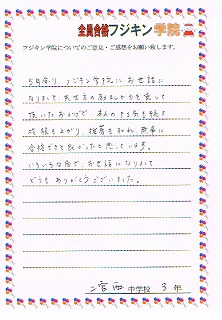 全員合格フジキン学院
フジキン学院についてのご意見・ご感想をお願い致します。
5年余り、フジキン学院にお世話に
なりまして、先生方の
頂いたおかげで、本人のやる気も続き
成績も上がり、推薦も取れ、無事に
合格できて良かったと思っています。
いろいろな面で、お世話になりまして
どうもありがとうございました。
二宮西 中学校 3 年